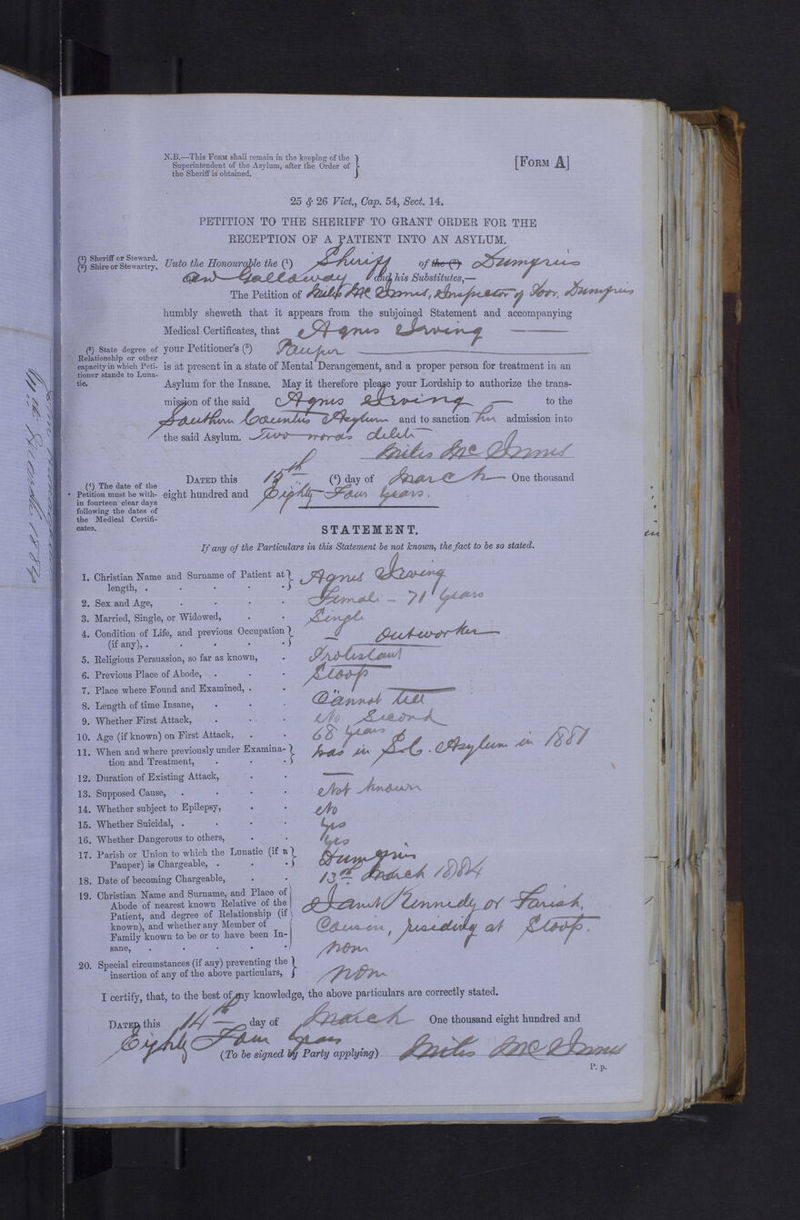 N.B.—This Form shall remain in the keeping of the
Superintendent of the Asylum, after the Order of
the Sheriff is obtained.
[Form A]
25 & 26 Vict., Cap. 54, Sect. 14.
PETITION TO THE SHERIFF TO GRANT ORDER FOR THE
RECEPTION OF A PATIENT INTO AN ASYLUM.
(1) Sheriff or Steward.
(2) Shire or Stewartry.
Unto the Honourable the (1) Sheriff of the (2) Dumfries
and Galloway and his Substitutes,—
The Petition of Miles McInnes, Inspector of Poor, Dumfries
humbly sheweth that it appears from the subjoined Statement and accompanying
Medical Certificates, that Agnes Irving
(3) State degree of
Relationship or other
capacity in which Peti-
tioner stands to Luna-
tic.
your Petitioner's (3) Pauper
is at present in a state of Mental Derangement, and a proper person for treatment in an
Asylum for the Insane. May it therefore please your Lordship to authorize the trans-
mission of the said Agnes Irving to the
Southern Counties Asylum and to sanction her admission into
the said Asylum. Two words delete
Miles McInnes
(4) The date of the
Petition must be with-
in fourteen clear days
following the dates of
the Medical Certifi-
cates.
Dated this (4) day of March One thousand
eight hundred and Eighty Four years.
STATEMENT.
If any of the Particulars in this Statement be not known, the fact to be so stated.
1. Christian Name and Surname of Patient at length, . Agnes Irving
2. Sex and Age, Female - 71 years
3. Married, Single, or Widowed, Single
4. Condition of Life, and previous Occupation (if any), . — Outworker
5. Religious Persuasion, so far as known, Protestant
6. Previous Place of Abode, Stoop
7. Place where Found and Examined, . "
8. Length of time Insane, Cannot tell
9. Whether First Attack, No Second
10. Age (if known) on First Attack, 68 years
11. When and where previously under Examina-tion and Treatment, Was in S.C. Asylum in 1881
12. Duration of Existing Attack, —
13. Supposed Cause, Not known
14. Whether subject to Epilepsy, No
15. Whether Suicidal, . Yes
16. Whether Dangerous to others, Yes
17. Parish or Union to which the Lunatic (if a Pauper) is Chargeable, . Dumfries
18. Date of becoming Chargeable, 13th March 1884
19. Christian Name and Surname, and Place of
Abode of nearest known Relative of the
Patient, and degree of Relationship (if
known), and whether any Member of
Family known to be or to have been In-
sane,
Janet Kennedy or Farish,
Cousin, residing at Stoop.
None
20. Special circumstances (if any) preventing the insertion of any of the above particulars, None
I certify, that, to the best of my knowledge, the above particulars are correctly stated.
Dated this 14th day of March One thousand eight hundred and
Eighty Four years
(To be signed by Party applying) Miles McInnes
P. p.